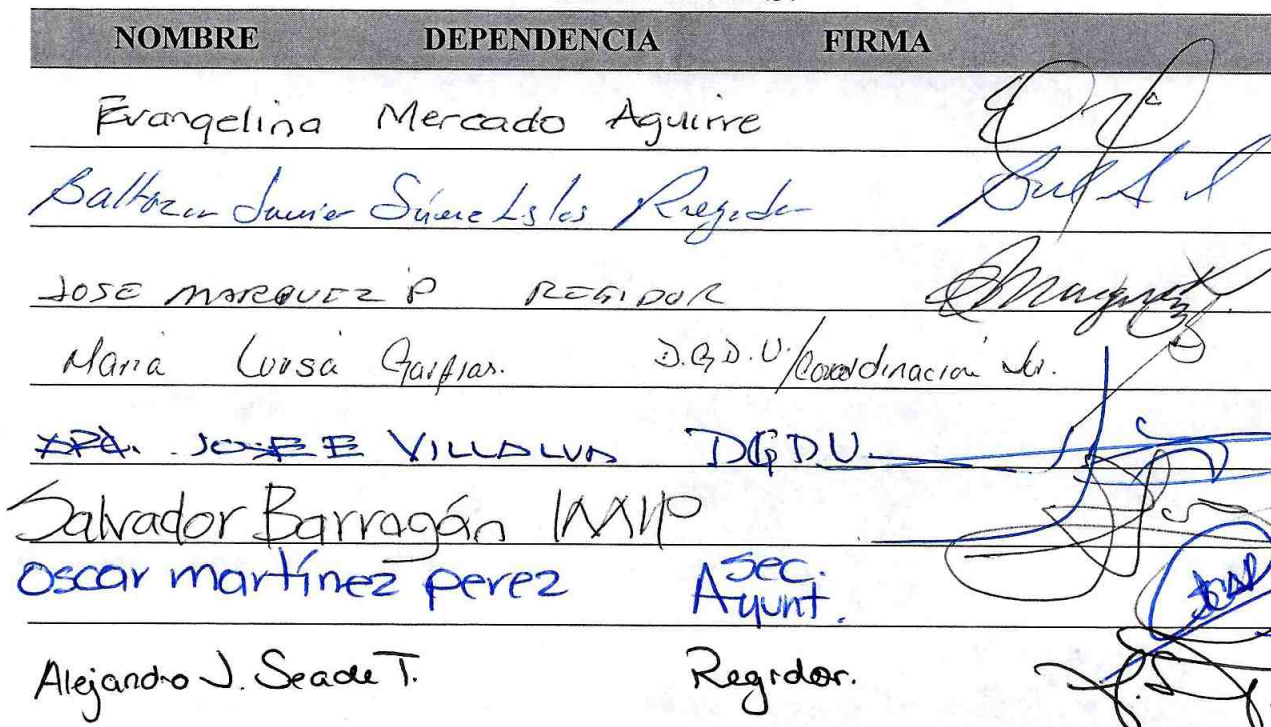 NOMBRE DEPENDENCIA FIRMA
Evangelina Mercado Aguirre
Javier Regidor
JOSE MARQUEZ P REGIDOR
Maria Luisa Garfias. D.G.D.U./Coordinación
JOSE E VILLALVA DGDU
Salvador Barragán
Oscar martínez perez Sec. Ayunt.
Alejandro J. Seade T. Regidor.